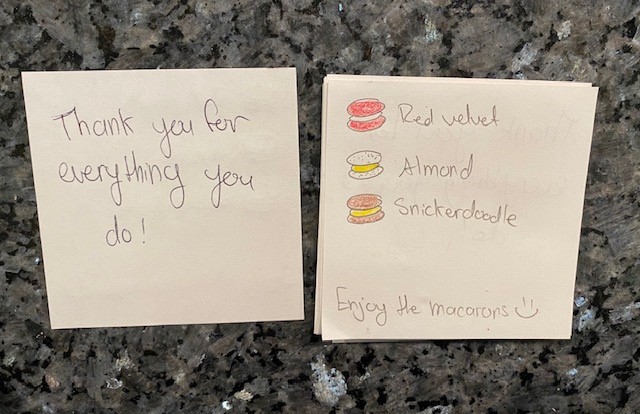 Thank you for
everything you
do!
Red velvet
Almond
Snickerdoodle
Enjoy the macarons